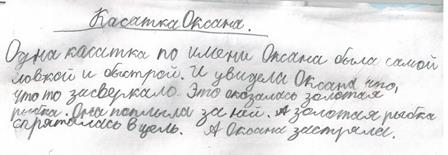 Касатка Оксана.
Одна касатка по имени Оксана была самой
ловкой и быстрой. И увидела Оксана что,
что то засверкало. Это оказалась золотая
рыбка. Она поплыла за ней. А золотая рыбка
спряталась в щель. А Оксана застряла.